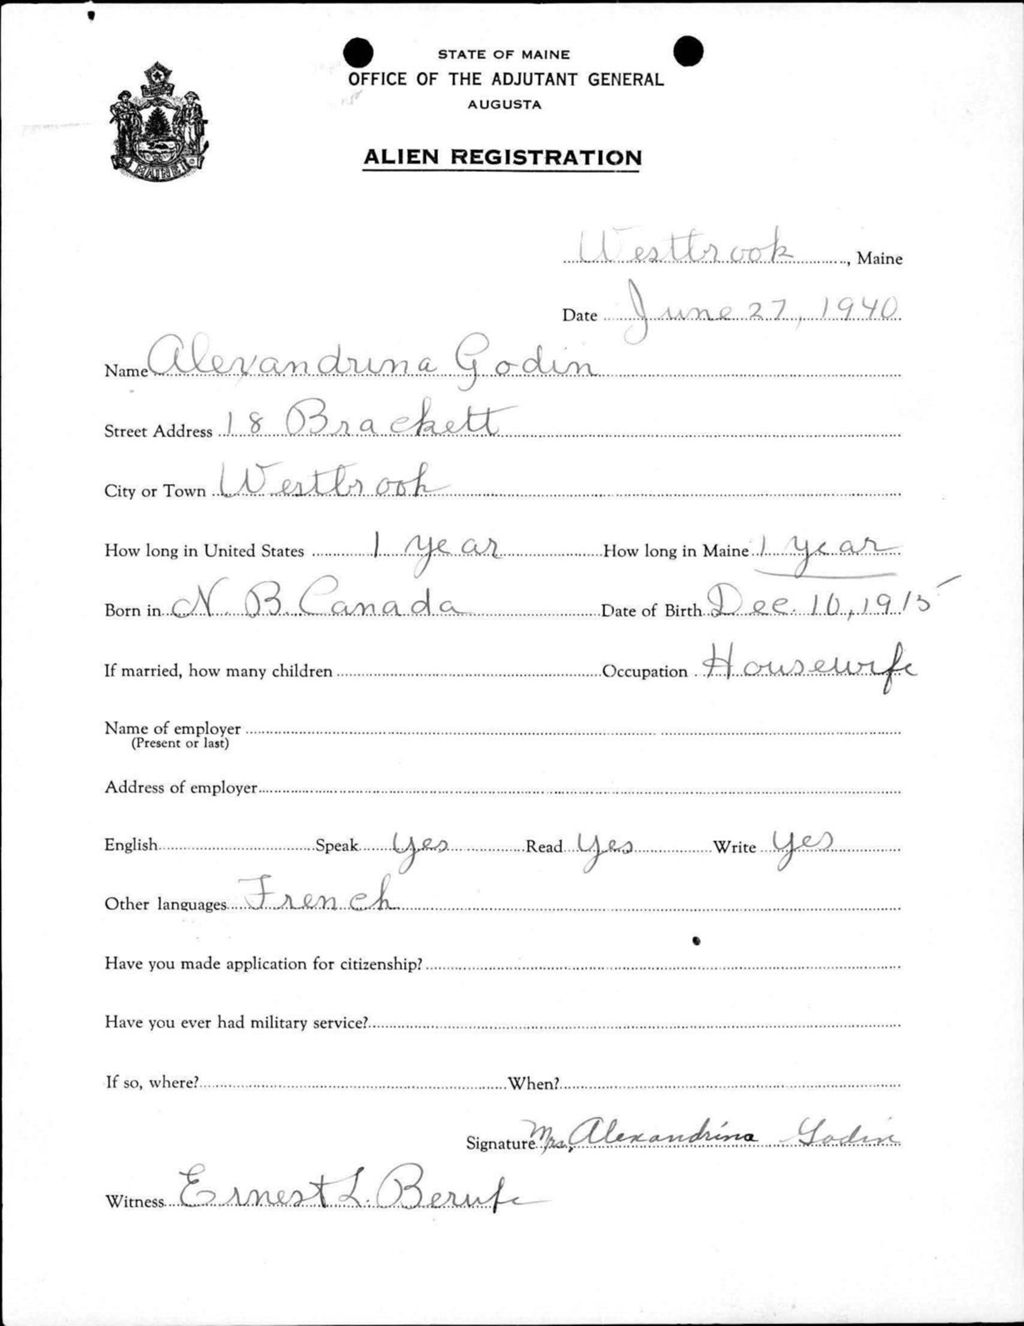 STATE OF MAINE
OFFICE OF THE ADJUTANT GENERAL
AUGUSTA
ALIEN REGISTRATION
MAINE
Westbrook, Maine
Date June 27, 1940
Name Alexandrina Godin
Street Address 18 Brackett
City or Town Westbrook
How long in United States 1 year How long in Maine 1 year
Born in N. B. Canada Date of Birth Dec. 10, 1915
If married, how many children Occupation Housewife
Name of employer
(Present or last)
Address of employer
English Speak yes Read yes Write yes
Other languages French
Have you made application for citizenship?
Have you ever had military service?
If so, where? When?
Signature Mrs, Alexandrina Godin
Witness Ernest L.